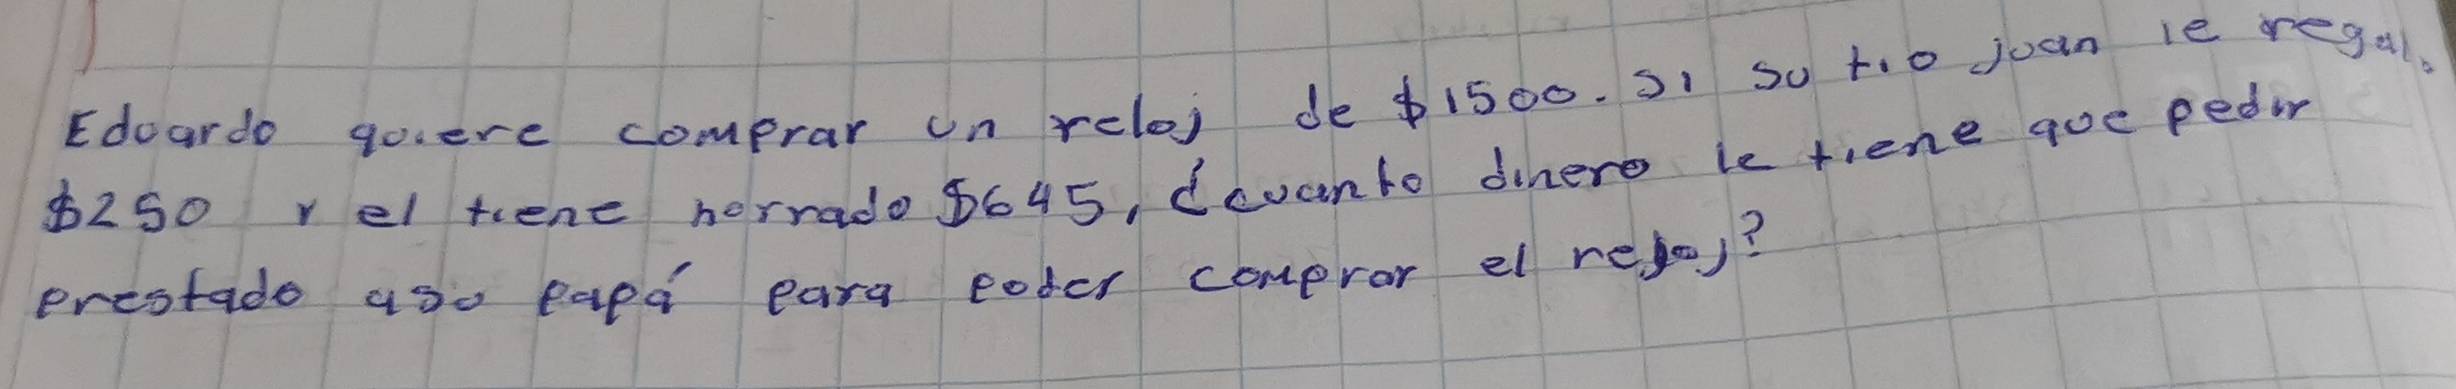 Eduardo quiere comprar un reloj de $1500. Si su tio juan le regala
$250 y el tiene horrado $645, ¿cuanto dinero le tiene que pedir
prestado a su papá para poder comprar el reloj?